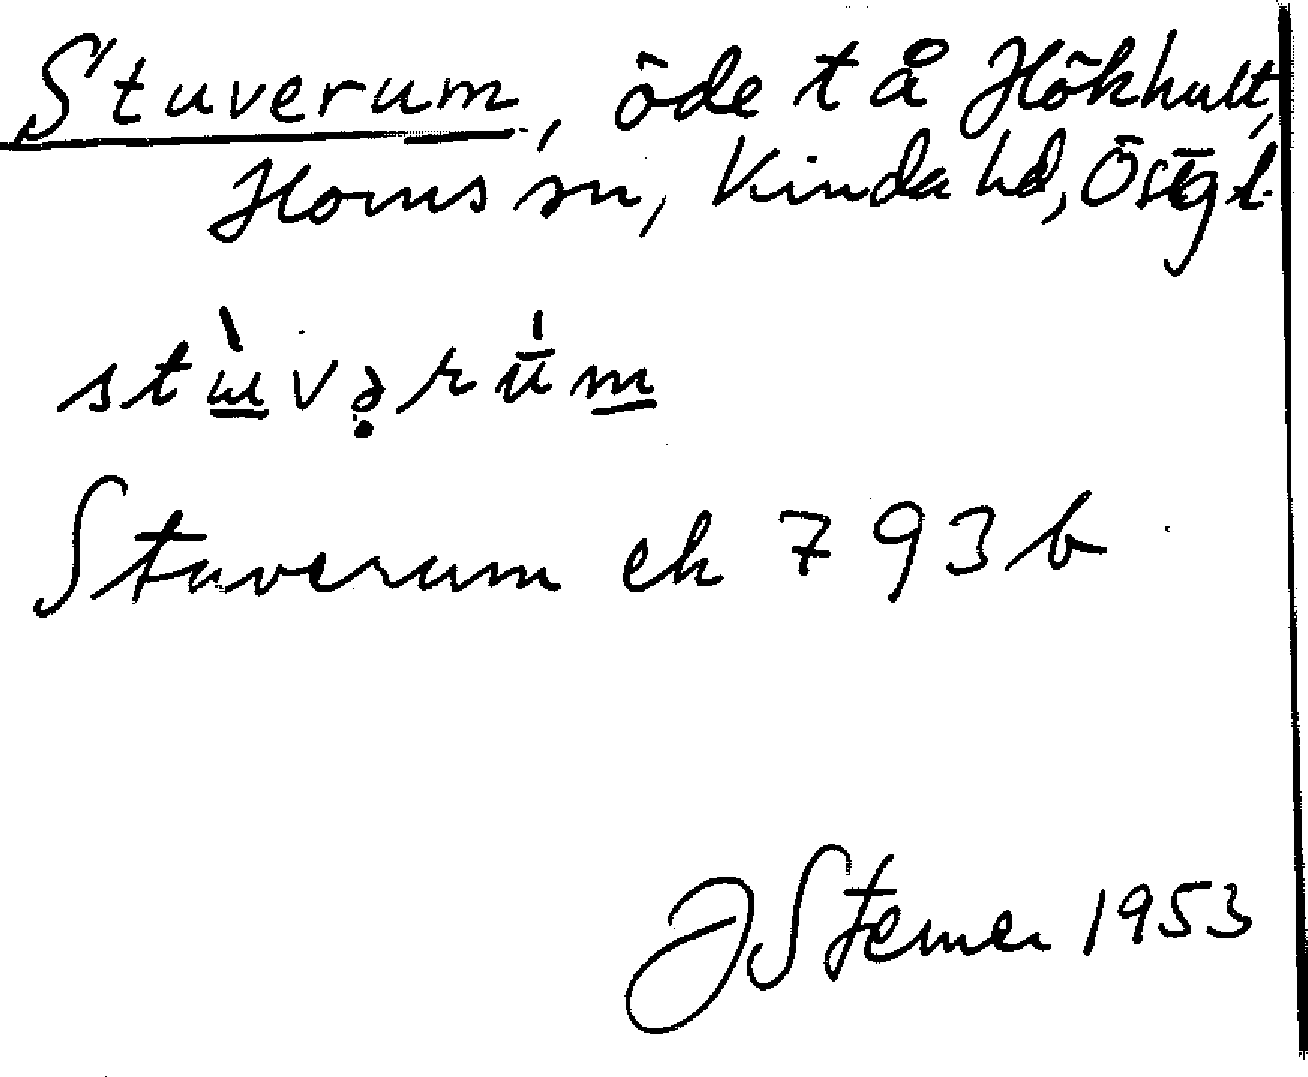 Stuverum, öde t å Hökhult,
Horns sn, Kinda hd, Östgl.
stùvərúm
Stuverum ek 793 b
J Sterner 1953